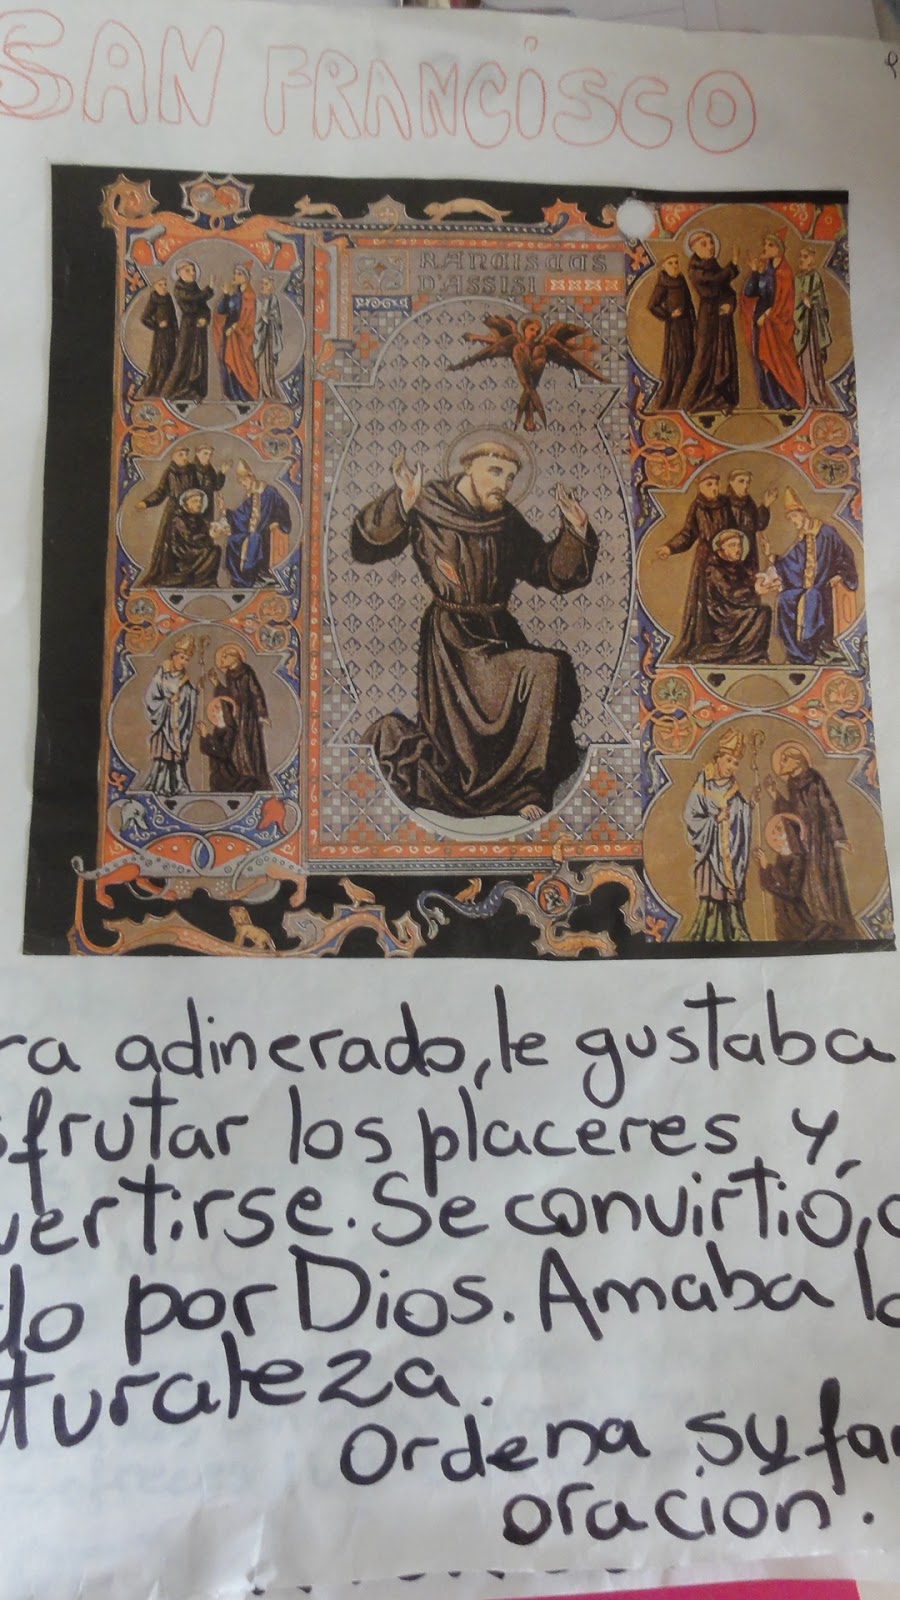 SAN FRANCÍSCO
RANCISCUS
D'ASSISI
ra adinerado, le gustaba
sfrutar los placeres y,
vertirse. Se convirtió, a
do por Dios. Amaba la
turaleza.
Ordena su fam
oración.